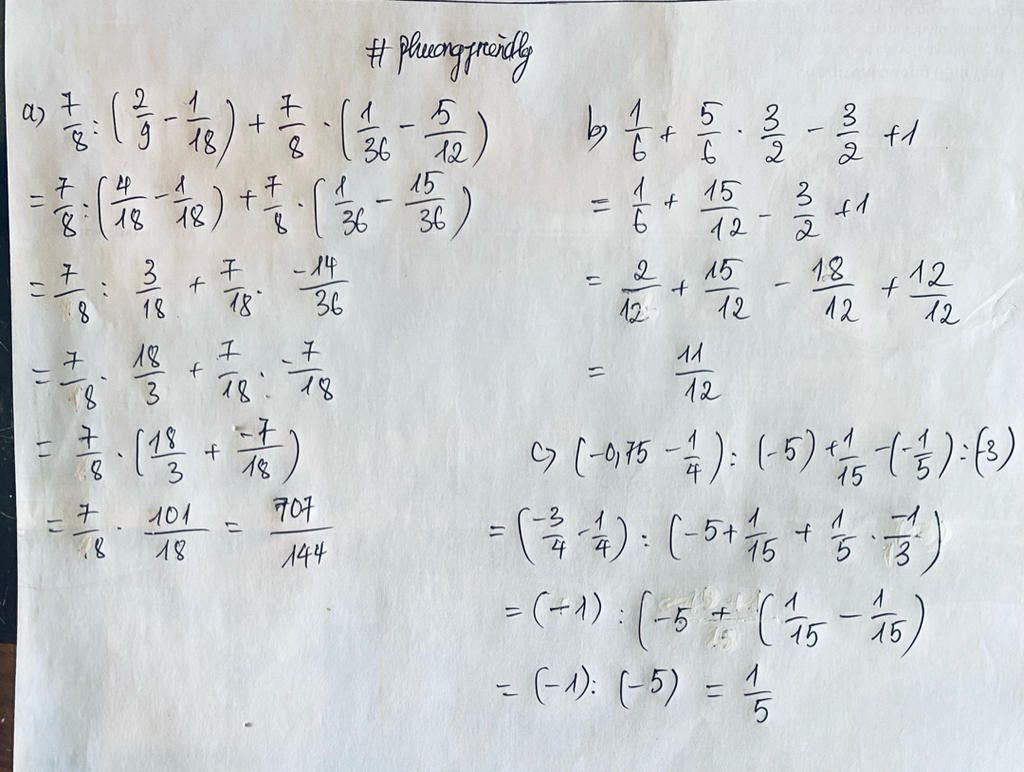 # phuongfriendly
a) 7/8 : (2/9 - 1/18) + 7/8 . (1/36 - 5/12)
= 7/8 : (4/18 - 1/18) + 7/8 . (1/36 - 15/36)
= 7/8 : 3/18 + 7/18 . -14/36
= 7/8 . 18/3 + 7/18 . -7/18
= 7/8 . (18/3 + -7/18)
= 7/8 . 101/18 = 707/144
b) 1/6 + 5/6 . 3/2 - 3/2 + 1
= 1/6 + 15/12 - 3/2 + 1
= 2/12 + 15/12 - 18/12 + 12/12
= 11/12
c) (-0,75 - 1/4) : (-5) + 1/15 - (-1/5) : (-3)
= (-3/4 - 1/4) : (-5 + 1/15 + 1/5 . -1/3)
= (-1) : (-5 + (1/15 - 1/15)
= (-1) : (-5) = 1/5